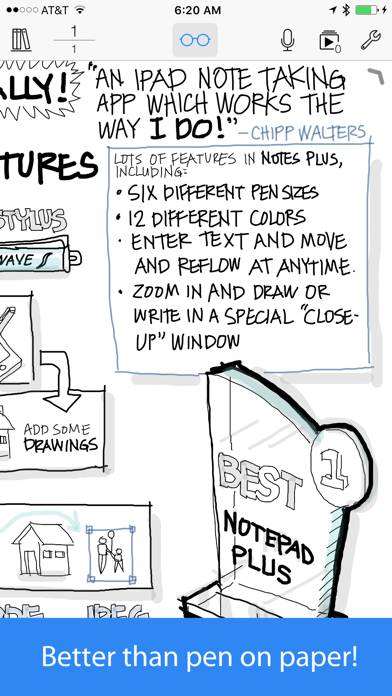 AT&T
6:20 AM
1
1
0
ALLY!
"AN IPAD NOTE TAKING
APP WHICH WORKS THE
WAY I DO!"
– CHIPP WALTERS
TURES
LOTS OF FEATURES IN NOTES PLUS,
INCLUDING:
• SIX DIFFERENT PEN SIZES
• 12 DIFFERENT COLORS
• ENTER TEXT AND MOVE
AND REFLOW AT ANYTIME.
• ZOOM IN AND DRAW OR
WRITE IN A SPECIAL "CLOSE-
UP" WINDOW
STYLUS
WAVE
ADD SOME
DRAWINGS
BEST
1
NOTEPAD
PLUS
JPEG
Better than pen on paper!